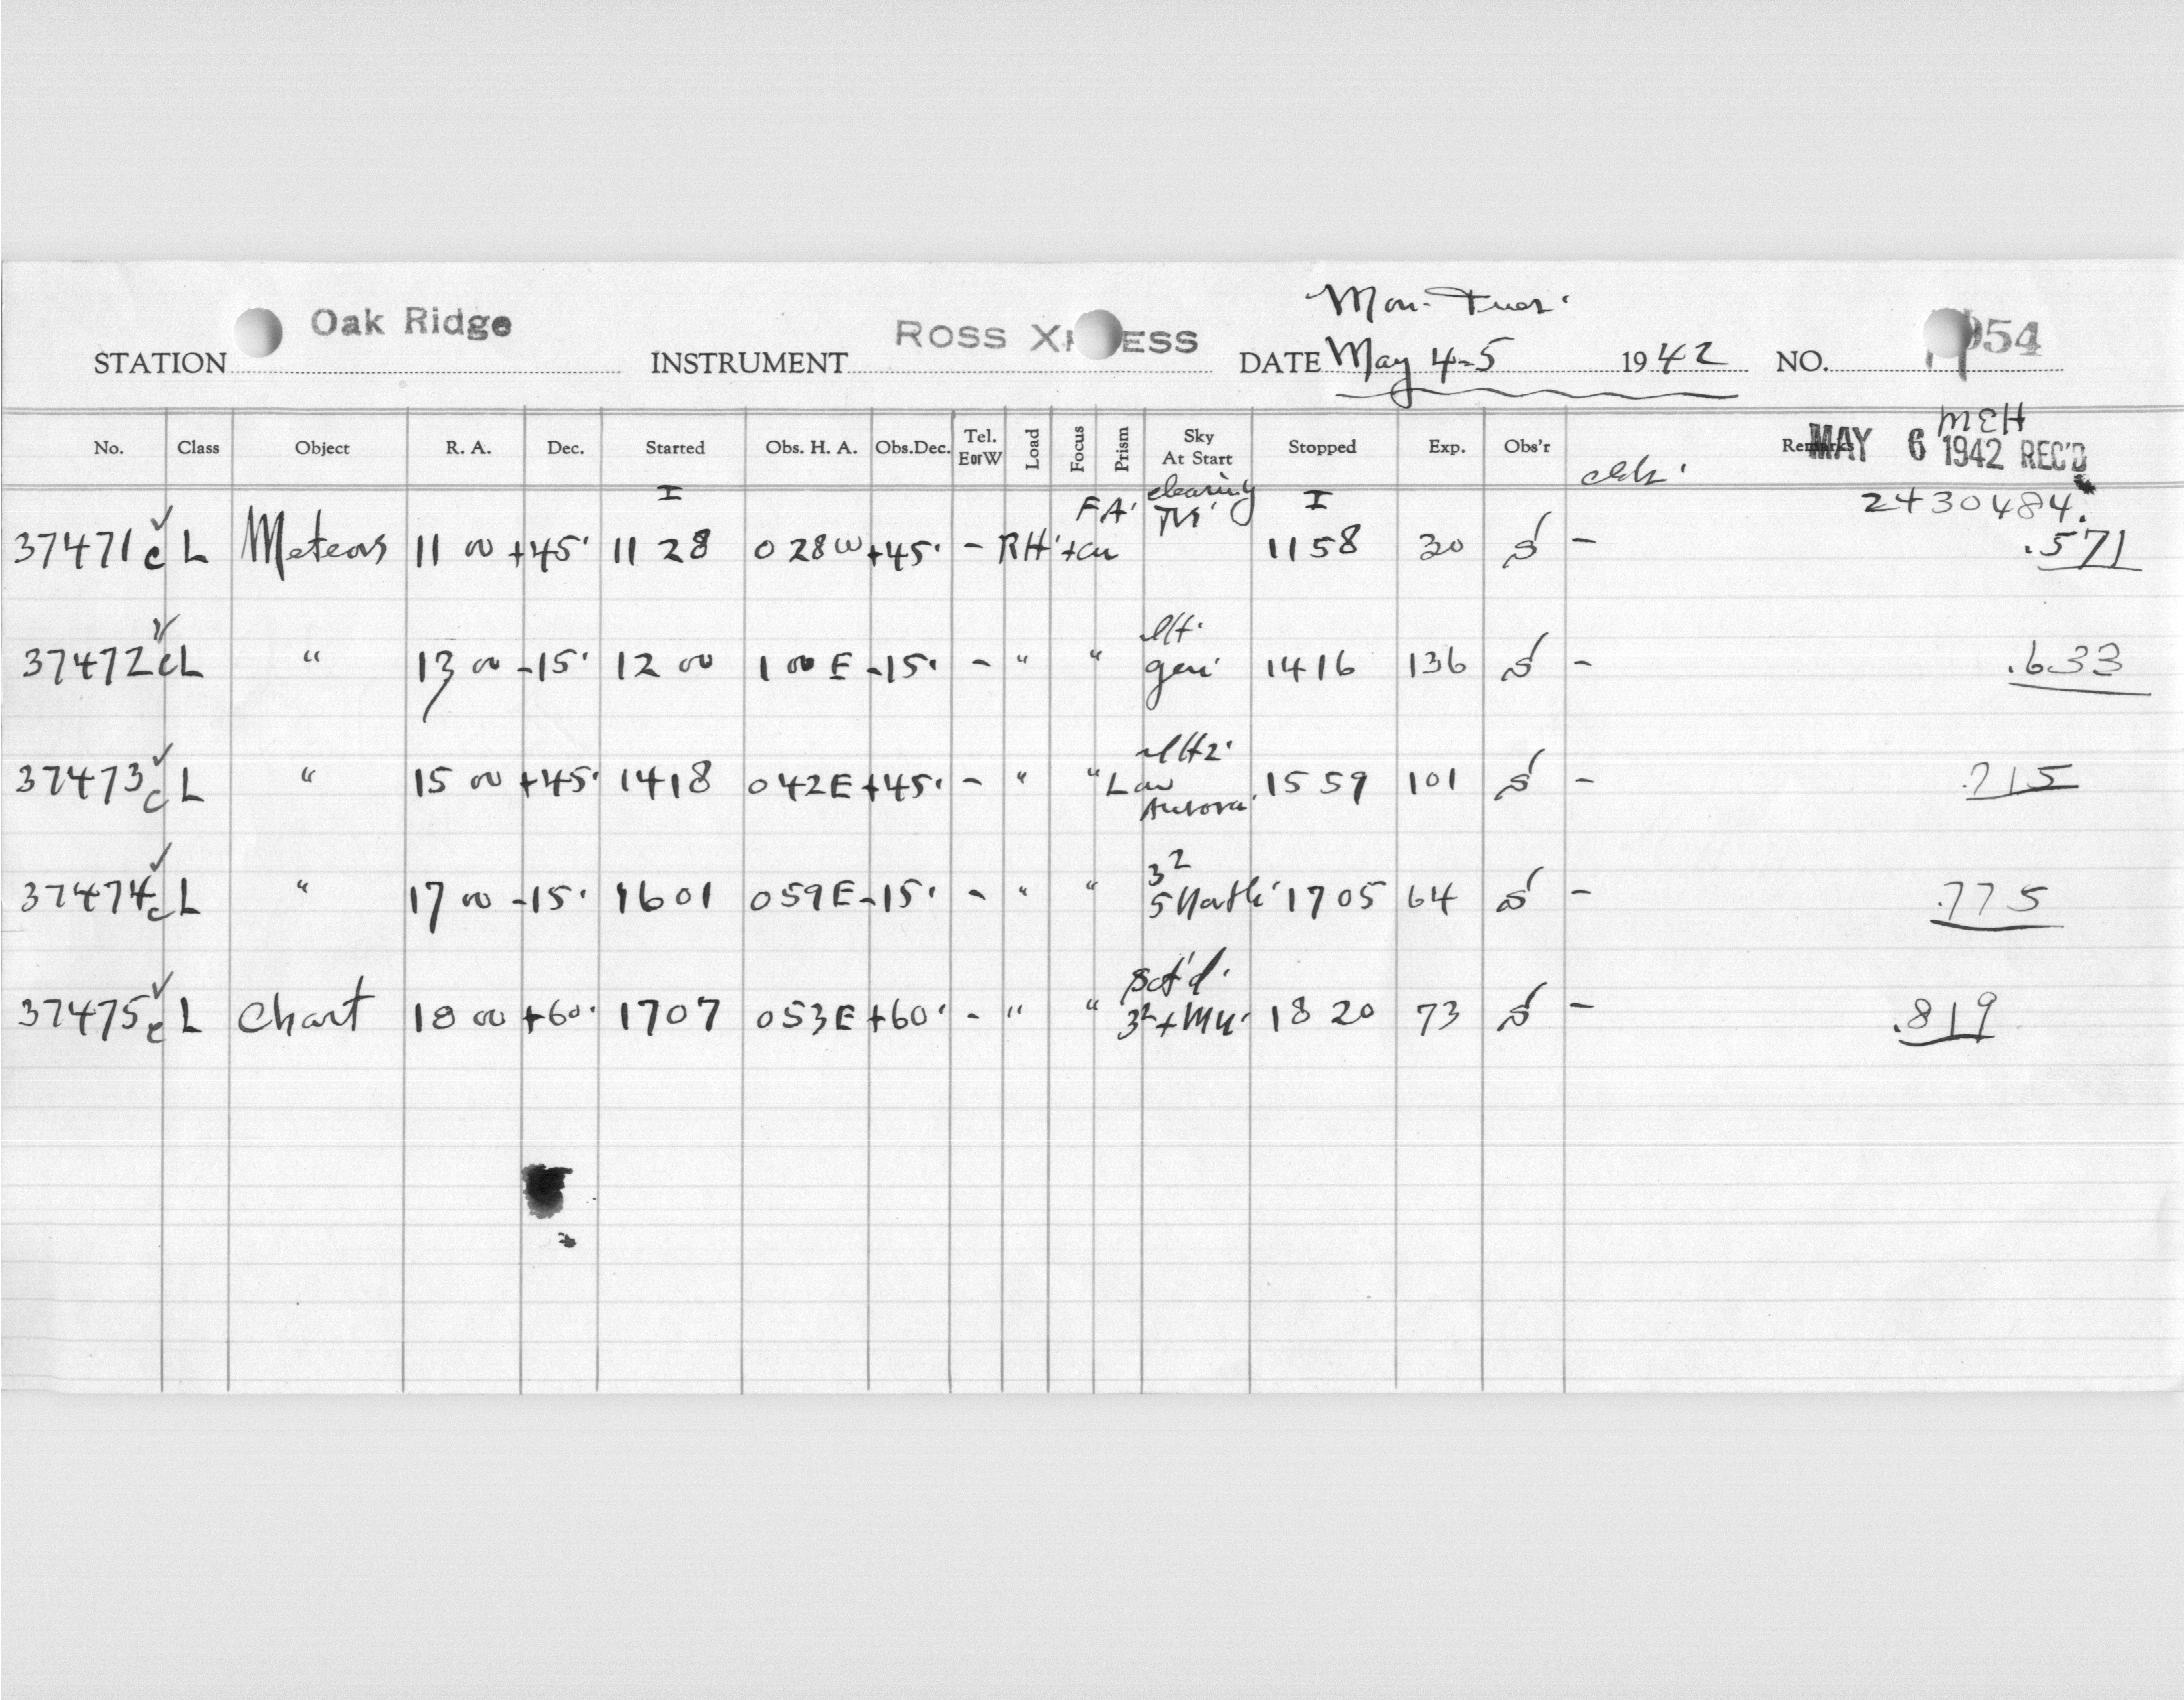 Mon-Tues.
STATION Oak Ridge INSTRUMENT ROSS X ESS DATE May 4-5 1942 NO. 954
MEH
MAY 6 1942 REC'D
No. Class Object R. A. Dec. Started Obs. H. A. Obs.Dec. Tel. EorW Load Focus Prism Sky At Start Stopped Exp. Obs'r Remarks
I clearing I 2430484.
37471 c L Meteors 11 00 +45 11 28 0 28 W +45 - RH FA 11 58 30 S - .571
37472 c L " 13 00 -15 12 00 1 00 E -15 - " " 14 16 136 S - .633
37473 c L " 15 00 +45 14 18 0 42 E +45 - " " Low Aurora 15 59 101 S - .715
37474 c L " 17 00 -15 16 01 0 59 E -15 - " " 3² 5 North 17 05 64 S - .775
37475 c L Chart 18 00 +60 17 07 0 53 E +60 - " " 3² 18 20 73 S - .819